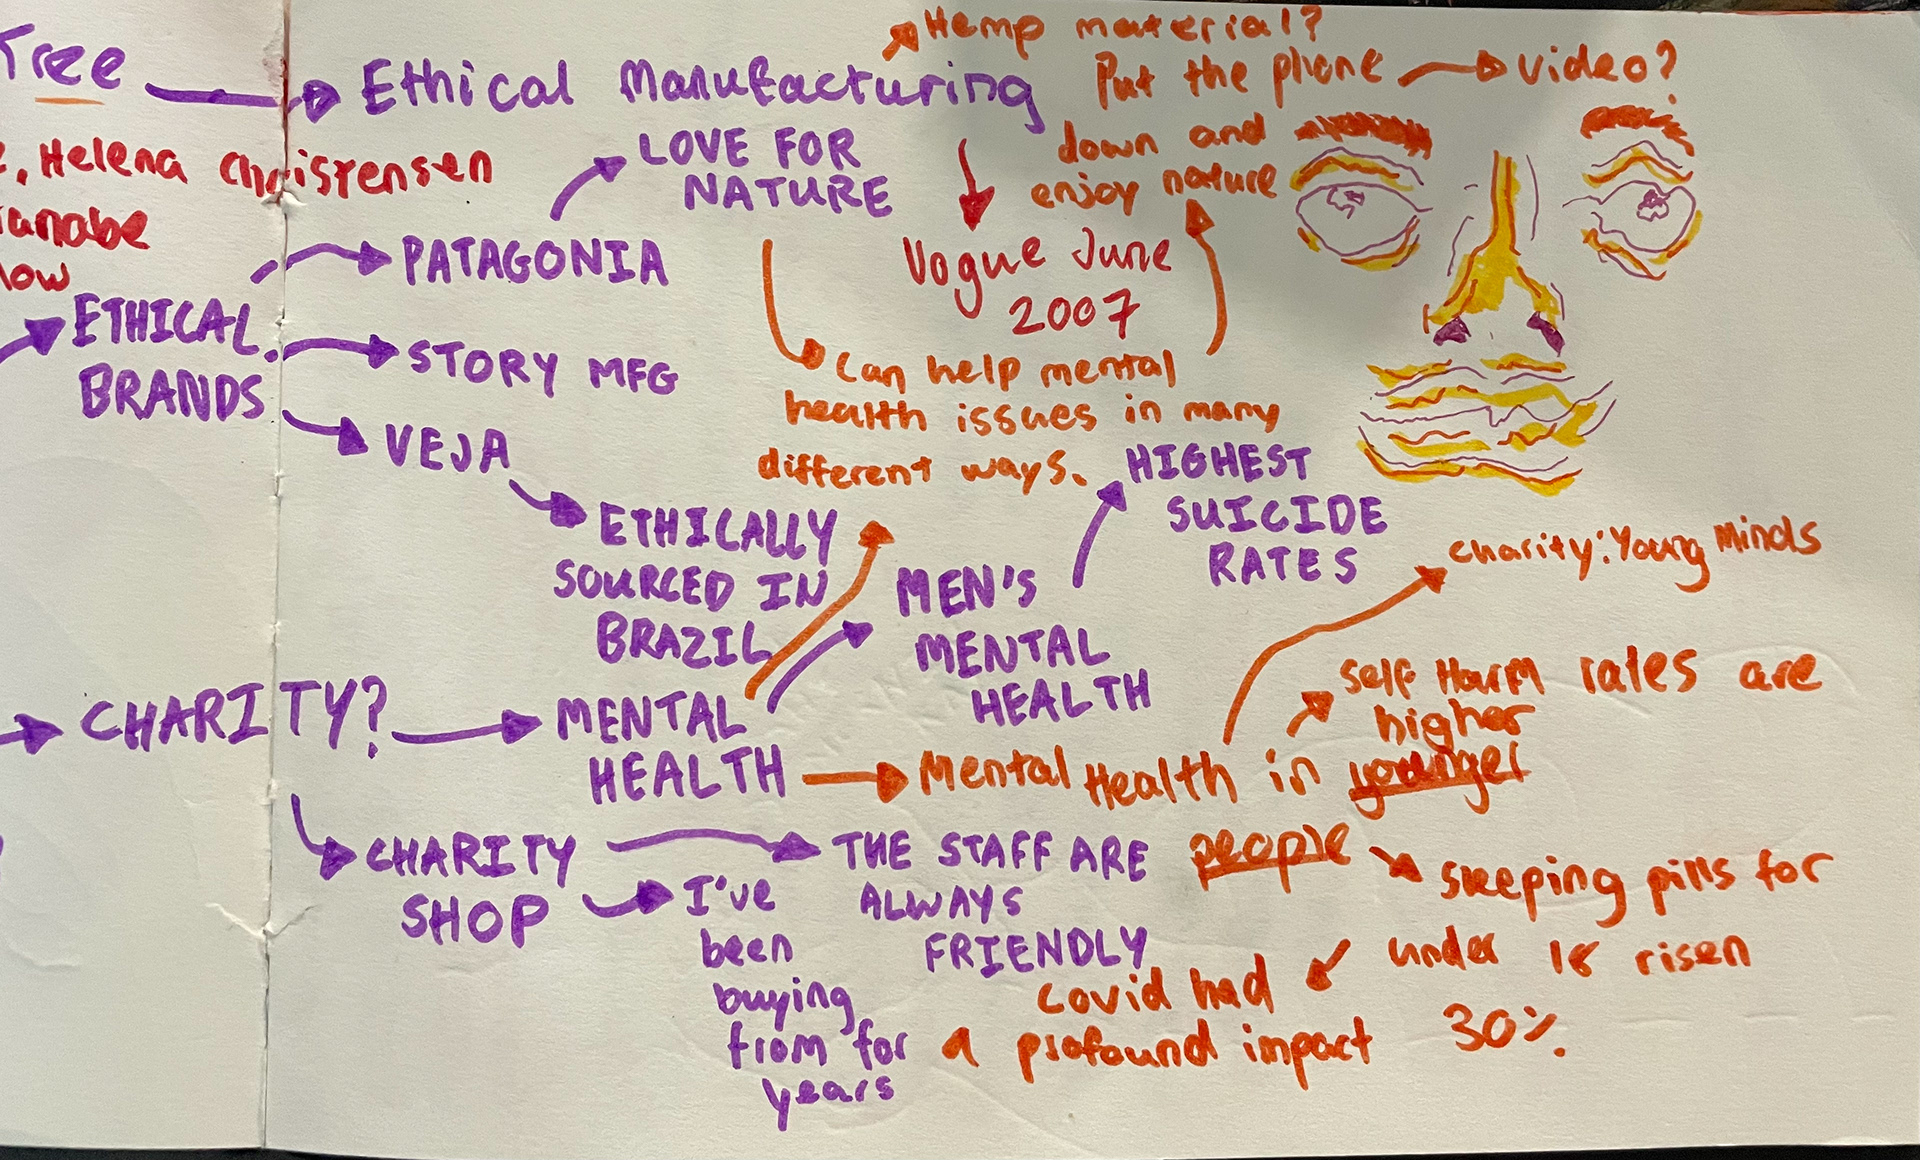 Tree
Ethical Manufacturing
Hemp material?
Put the phone
down and
enjoy nature
video?
Helena Christensen
LOVE FOR
NATURE
PATAGONIA
ETHICAL
BRANDS
STORY MFG
VEJA
ETHICALLY
SOURCED IN
BRAZIL
Vogue June
2007
Can help mental
health issues in many
different ways.
HIGHEST
SUICIDE
RATES
MEN'S
MENTAL
HEALTH
CHARITY?
MENTAL
HEALTH
Mental Health in younger
people
charity: Young Minds
Self Harm rates are
higher
sleeping pills for
under 18 risen
30%
Covid had
a profound impact
CHARITY
SHOP
THE STAFF ARE
ALWAYS
FRIENDLY
I've
been
buying
from for
years